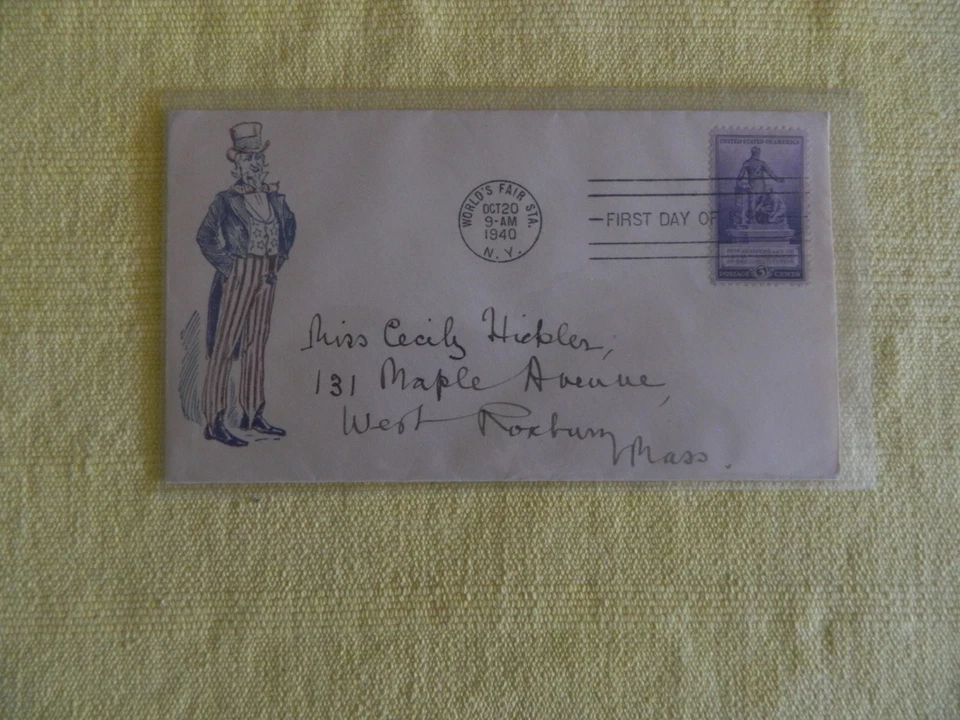 WORLD'S FAIR STA.
OCT 20
9-AM
1940
N. Y.
FIRST DAY OF
UNITED STATES OF AMERICA
POSTAGE 3 CENTS
Miss Cecily Hickler,
131 Maple Avenue,
West Roxbury
Mass.